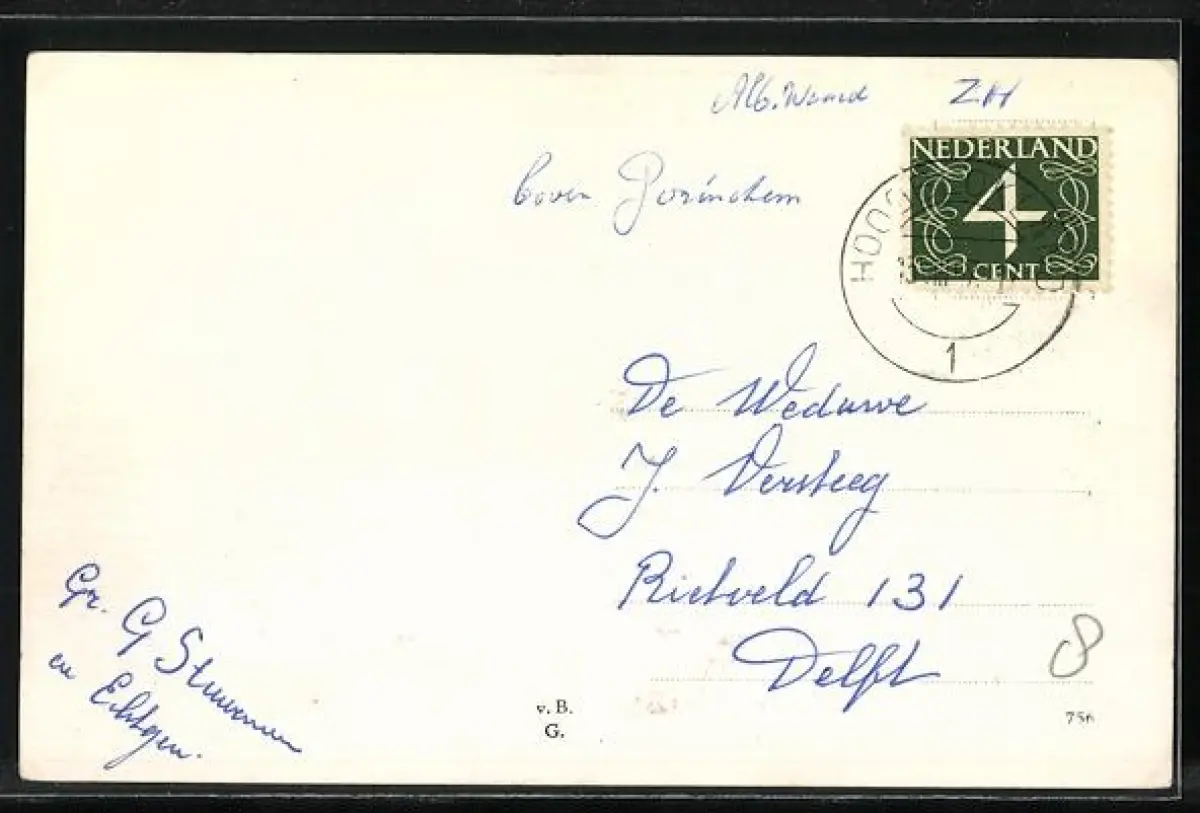 Alb. Waard ZH
boven Gorinchem
NEDERLAND
4
CENT
HOOG
1
De Weduwe
J. Versteeg
Rietveld 131
Delft
8
Gr. G Stuurman
en Echtgen.
v. B.
G.
756